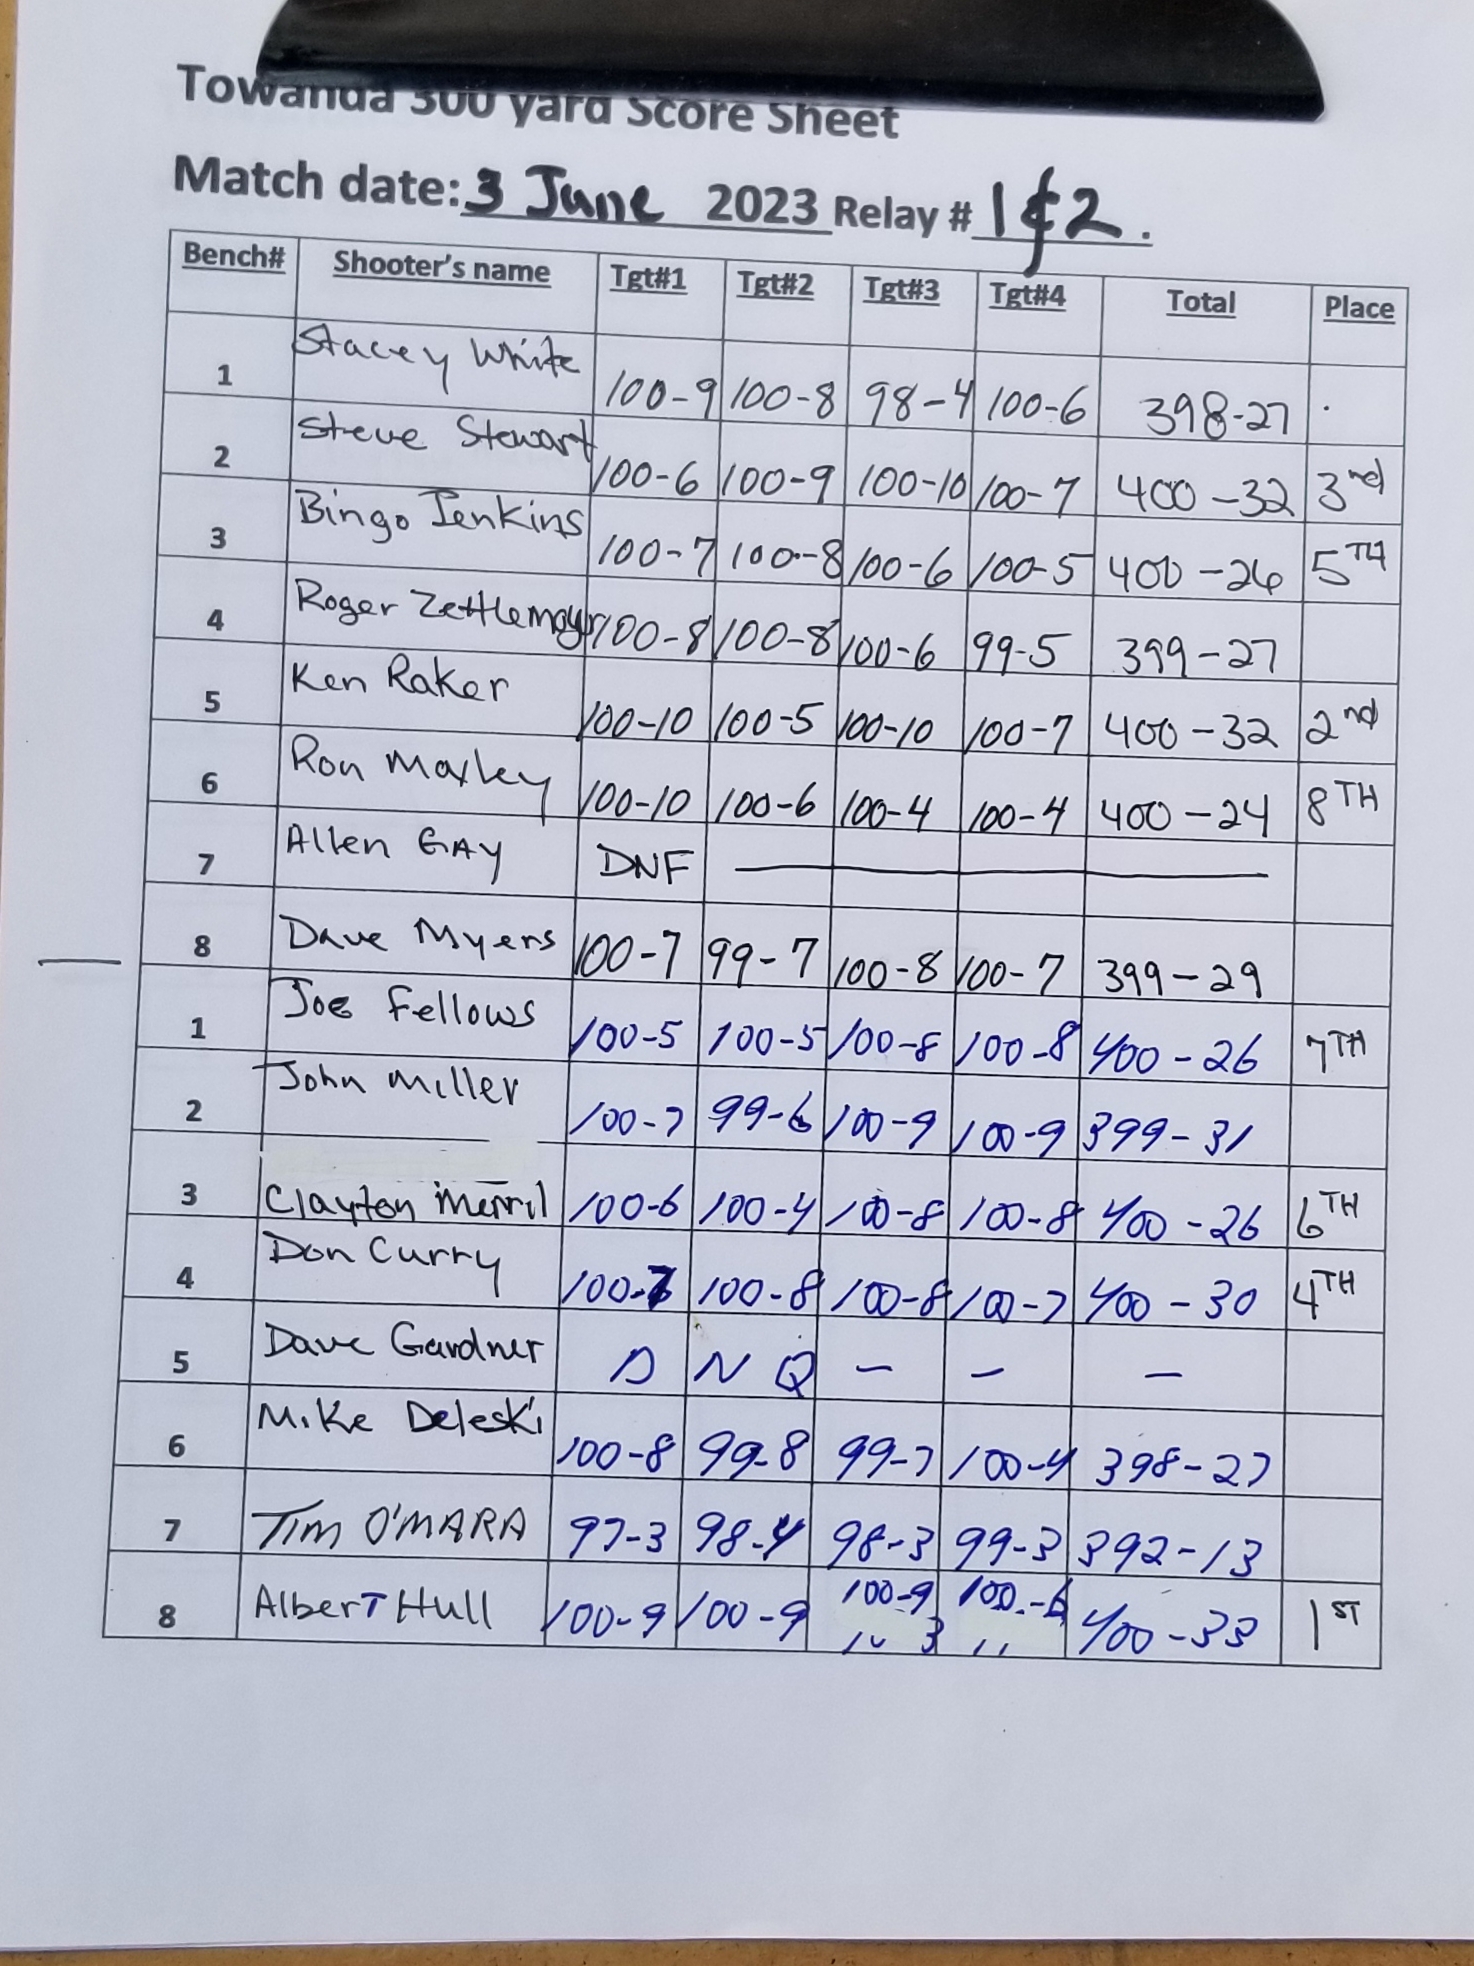 Towanda 300 yard Score Sheet
Match date: 3 June 2023 Relay # 1 & 2.
Bench# Shooter's name Tgt#1 Tgt#2 Tgt#3 Tgt#4 Total Place
1 Stacey White 100-9 100-8 98-4 100-6 398-27
2 Steve Stewart 100-6 100-9 100-10 100-7 400-32 3rd
3 Bingo Jenkins 100-7 100-8 100-6 100-5 400-26 5TH
4 Roger Zettlemoyr 100-8 100-8 100-6 99-5 399-27
5 Ken Raker 100-10 100-5 100-10 100-7 400-32 2nd
6 Ron Maxley 100-10 100-6 100-4 100-4 400-24 8TH
7 Allen GAY DNF —
8 Dave Myers 100-7 99-7 100-8 100-7 399-29
1 Joe Fellows 100-5 100-5 100-8 100-8 400-26 7TH
2 John Miller 100-7 99-6 100-9 100-9 399-31
3 Clayton Merril 100-6 100-4 100-8 100-8 400-26 6TH
4 Don Curry 100-7 100-8 100-8 100-7 400-30 4TH
5 Dave Gardner D N Q - - -
6 Mike Deleski 100-8 99-8 99-7 100-4 398-27
7 TIM O'MARA 97-3 98-4 98-3 99-3 392-13
8 AlberT Hull 100-9 100-9 100-9 100-6 400-33 1ST